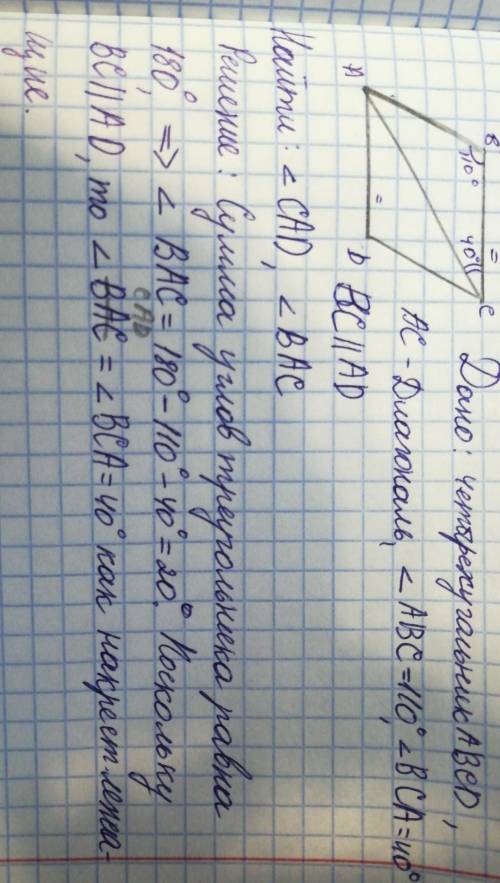 B
110°
=
40°
C
A
=
D
Дано: четырехугальник ABCD,
AC - Диагональ, < ABC=110°, < BCA=40°
BC || AD
Найти: < CAD, < BAC
Решение: Сумма углов треугольника равна
180°, => < BAC = 180° - 110° - 40° = 20°. Поскольку
CAD
BC || AD, то < BAC = < BCA = 40° как накрест лежа-
щие.